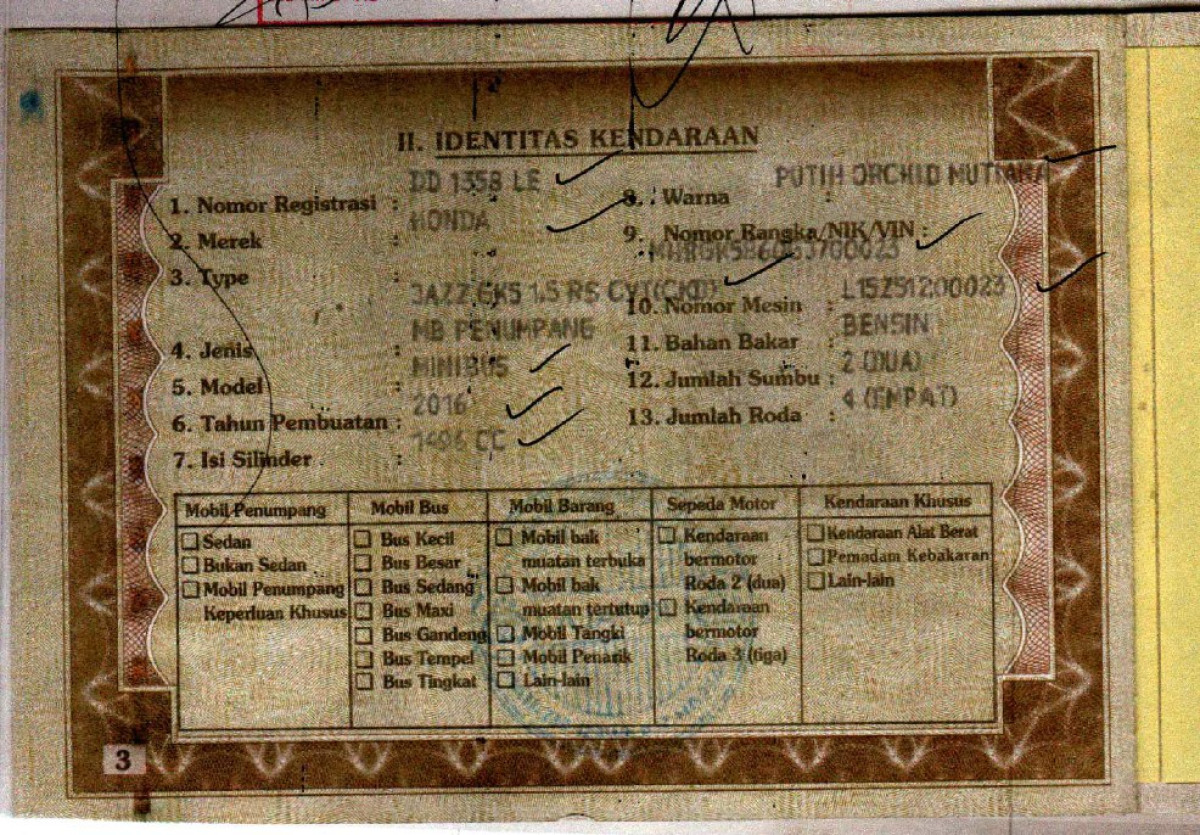 II. IDENTITAS KENDARAAN
1. Nomor Registrasi : DD 1358 LE
2. Merek : HONDA
3. Type : JAZZ GK5 1.5 RS CVT(CKD)
MB PENUMPANG
4. Jenis : MINIBUS
5. Model : 2016
6. Tahun Pembuatan : 1496 CC
7. Isi Silinder :
8. Warna : PUTIH ORCHID MUTIARA
9. Nomor Rangka/NIK/VIN :
10. Nomor Mesin : L15Z51200023
11. Bahan Bakar : BENSIN
12. Jumlah Sumbu : 2 (DUA)
13. Jumlah Roda : 4 (EMPAT)
Mobil Penumpang
Sedan
Bukan Sedan
Mobil Penumpang
Keperluan Khusus
Mobil Bus
Bus Kecil
Bus Besar
Bus Sedang
Bus Maxi
Bus Gandeng
Bus Tempel
Bus Tingkat
Mobil Barang
Mobil bak
muatan terbuka
Mobil bak
muatan tertutup
Mobil Tangki
Mobil Penarik
Lain-lain
Sepeda Motor
Kendaraan
bermotor
Roda 2 (dua)
Kendaraan
bermotor
Roda 3 (tiga)
Kendaraan Khusus
Kendaraan Alat Berat
Pemadam Kebakaran
Lain-lain
3